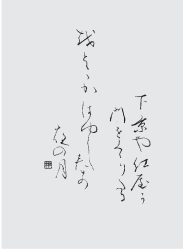 下京や紅屋か
門をくゝりたる
をとこかはゆし春の
夜の月